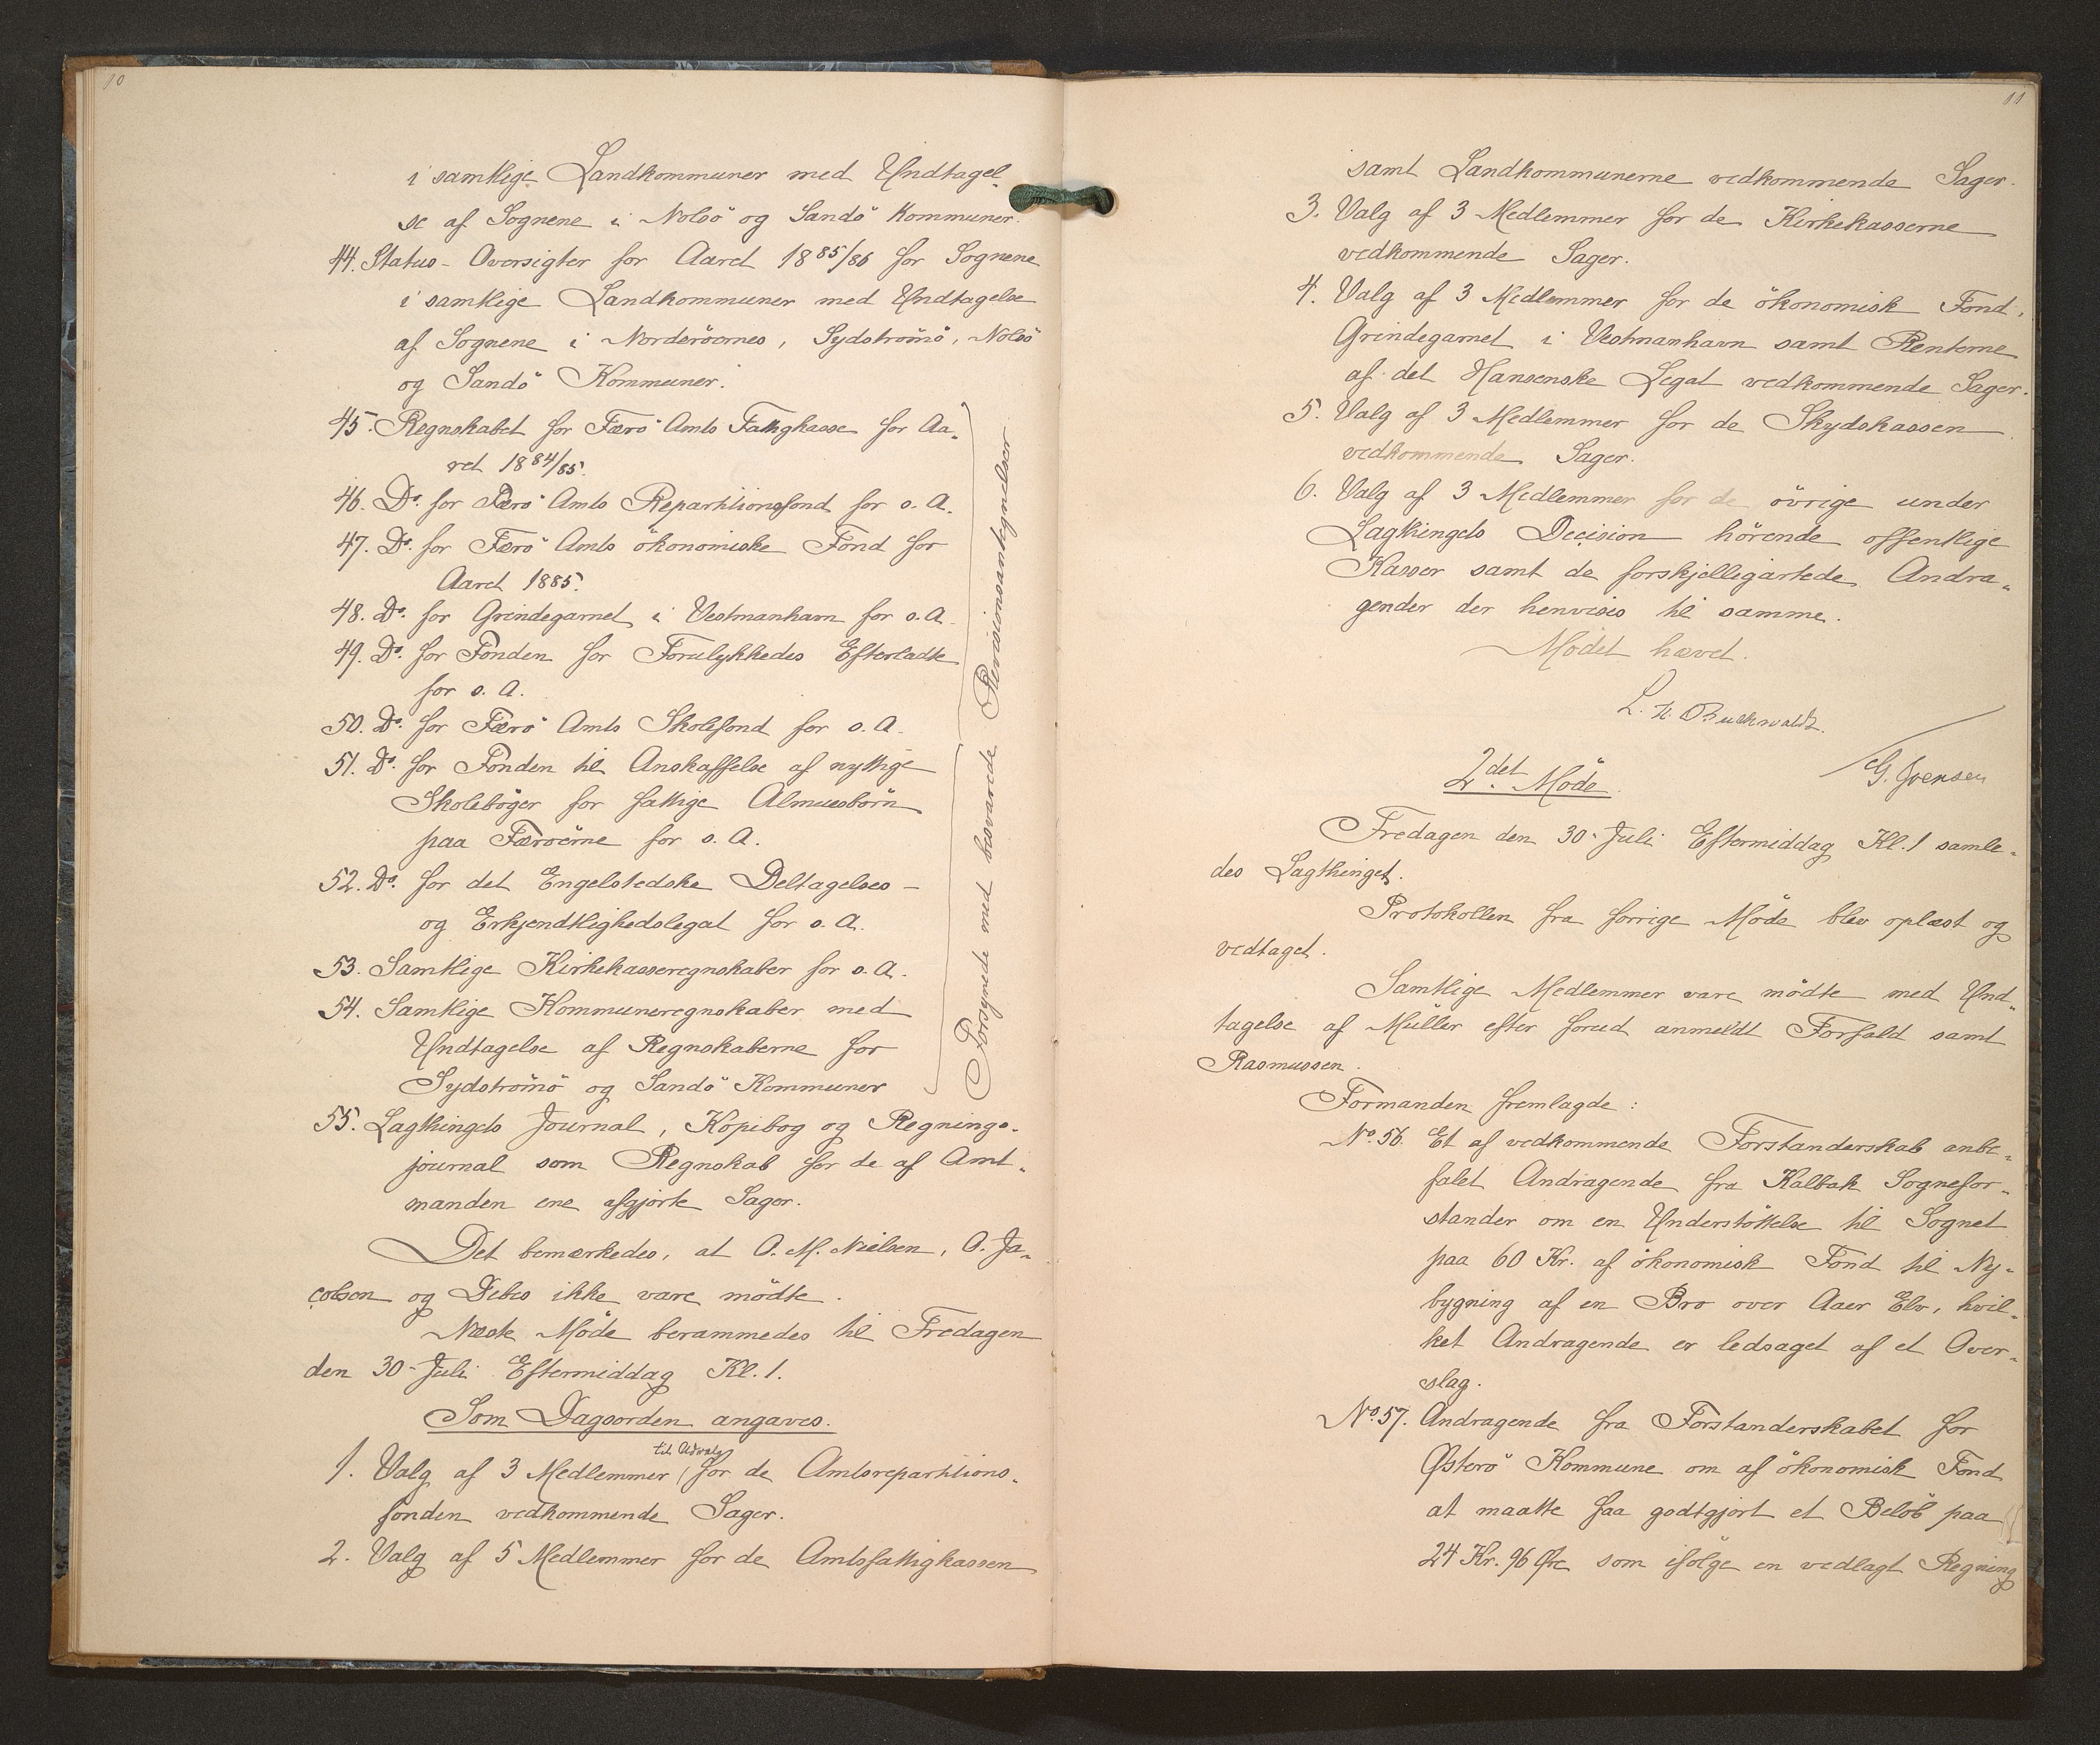 10
i samtlige Landkommuner med Undtagel-
se af Sognene i Nolsö og Sandö Kommuner.
44. Status-Oversigter for Aaret 1885/86 for Sognene
i samtlige Landkommuner med Undtagelse
af Sognene i Norderöernes, Sydströmö, Nolsö
og Sandö Kommuner.
45. Regnskabet for Færö Amts Fattigkasse for Aa-
ret 1884/85.
46. Do. for Færö Amts Repartitionsfond for s. A.
47. Do. for Færö Amts ökonomiske Fond for
Aaret 1885.
48. Do. for Grindegarnet i Vestmanhavn for s. A.
49. Do. for Fonden for Forulykkedes Efterladte
for s. A.
50. Do. for Færö Amts Skolefond for s. A.
51. Do. for Fonden til Anskaffelse af nyttige
Skoleböger for fattige Almuesbörn
paa Færöerne for s. A.
52. Do. for det Engelstedske Deltagelses-
og Erkjendtlighedslegat for s. A.
53. Samtlige Kirkekasseregnskaber for s. A.
54. Samtlige Kommuneregnskaber med
Undtagelse af Regnskaberne for
Sydströmö og Sandö Kommuner
Forsynede med besvarede Revisionsantegnelser
55. Lagthingets Journal, Kopibog og Regnings-
journal som Regnskab for de af Amt-
manden ene afgjorte Sager.
Det bemærkedes, at O. M. Nielsen, O. Ja-
cobsen og Debes ikke vare mödte.
Næste Möde berammedes til Fredagen
den 30- Juli Eftermiddag Kl. 1.
Som Dagsorden angaves.
til Udvalg
1. Valg af 3 Medlemmer for de Amtsrepartitions-
fonden vedkommende Sager.
2. Valg af 5 Medlemmer for de Amtsfattigkassen
11
samt Landkommunerne vedkommende Sager.
3. Valg af 3 Medlemmer for de Kirkekasserne
vedkommende Sager.
4. Valg af 3 Medlemmer for de ökonomisk Fond,
Grindegarnet i Vestmanhavn samt Renterne
af det Hansenske Legat vedkommende Sager.
5. Valg af 3 Medlemmer for de Skydskassen
vedkommende Sager.
6. Valg af 3 Medlemmer for de övrige under
Lagthingets Decision hörende offentlige
Kasser samt de forskjelligartede Andra-
gender der henvises til samme.
Mödet hævet.
L. H. Buchwaldt.
G. Joensen
2det Möde.
Fredagen den 30- Juli Eftermiddag Kl. 1 samle-
des Lagthinget.
Protokollen fra forrige Möde blev oplæst og
vedtaget.
Samtlige Medlemmer vare mödte med Und-
tagelse af Müller efter forud anmeldt Forfald samt
Rasmussen.
Formanden fremlagde:
No. 56. Et af vedkommende Forstanderskab anbe-
falet Andragende fra Kalbak Sognefor-
stander om en Understöttelse til Sognet
paa 60 Kr. af ökonomisk Fond til Ny-
bygning af en Bro over Aaer Elv, hvil-
ket Andragende er ledsaget af et Over-
slag.
No. 57. Andragende fra Forstanderskabet for
Österö Kommune om af ökonomisk Fond
at maatte faa godtgjort et Belöb paa
24 Kr. 96 Öre som ifölge en vedlagt Regning